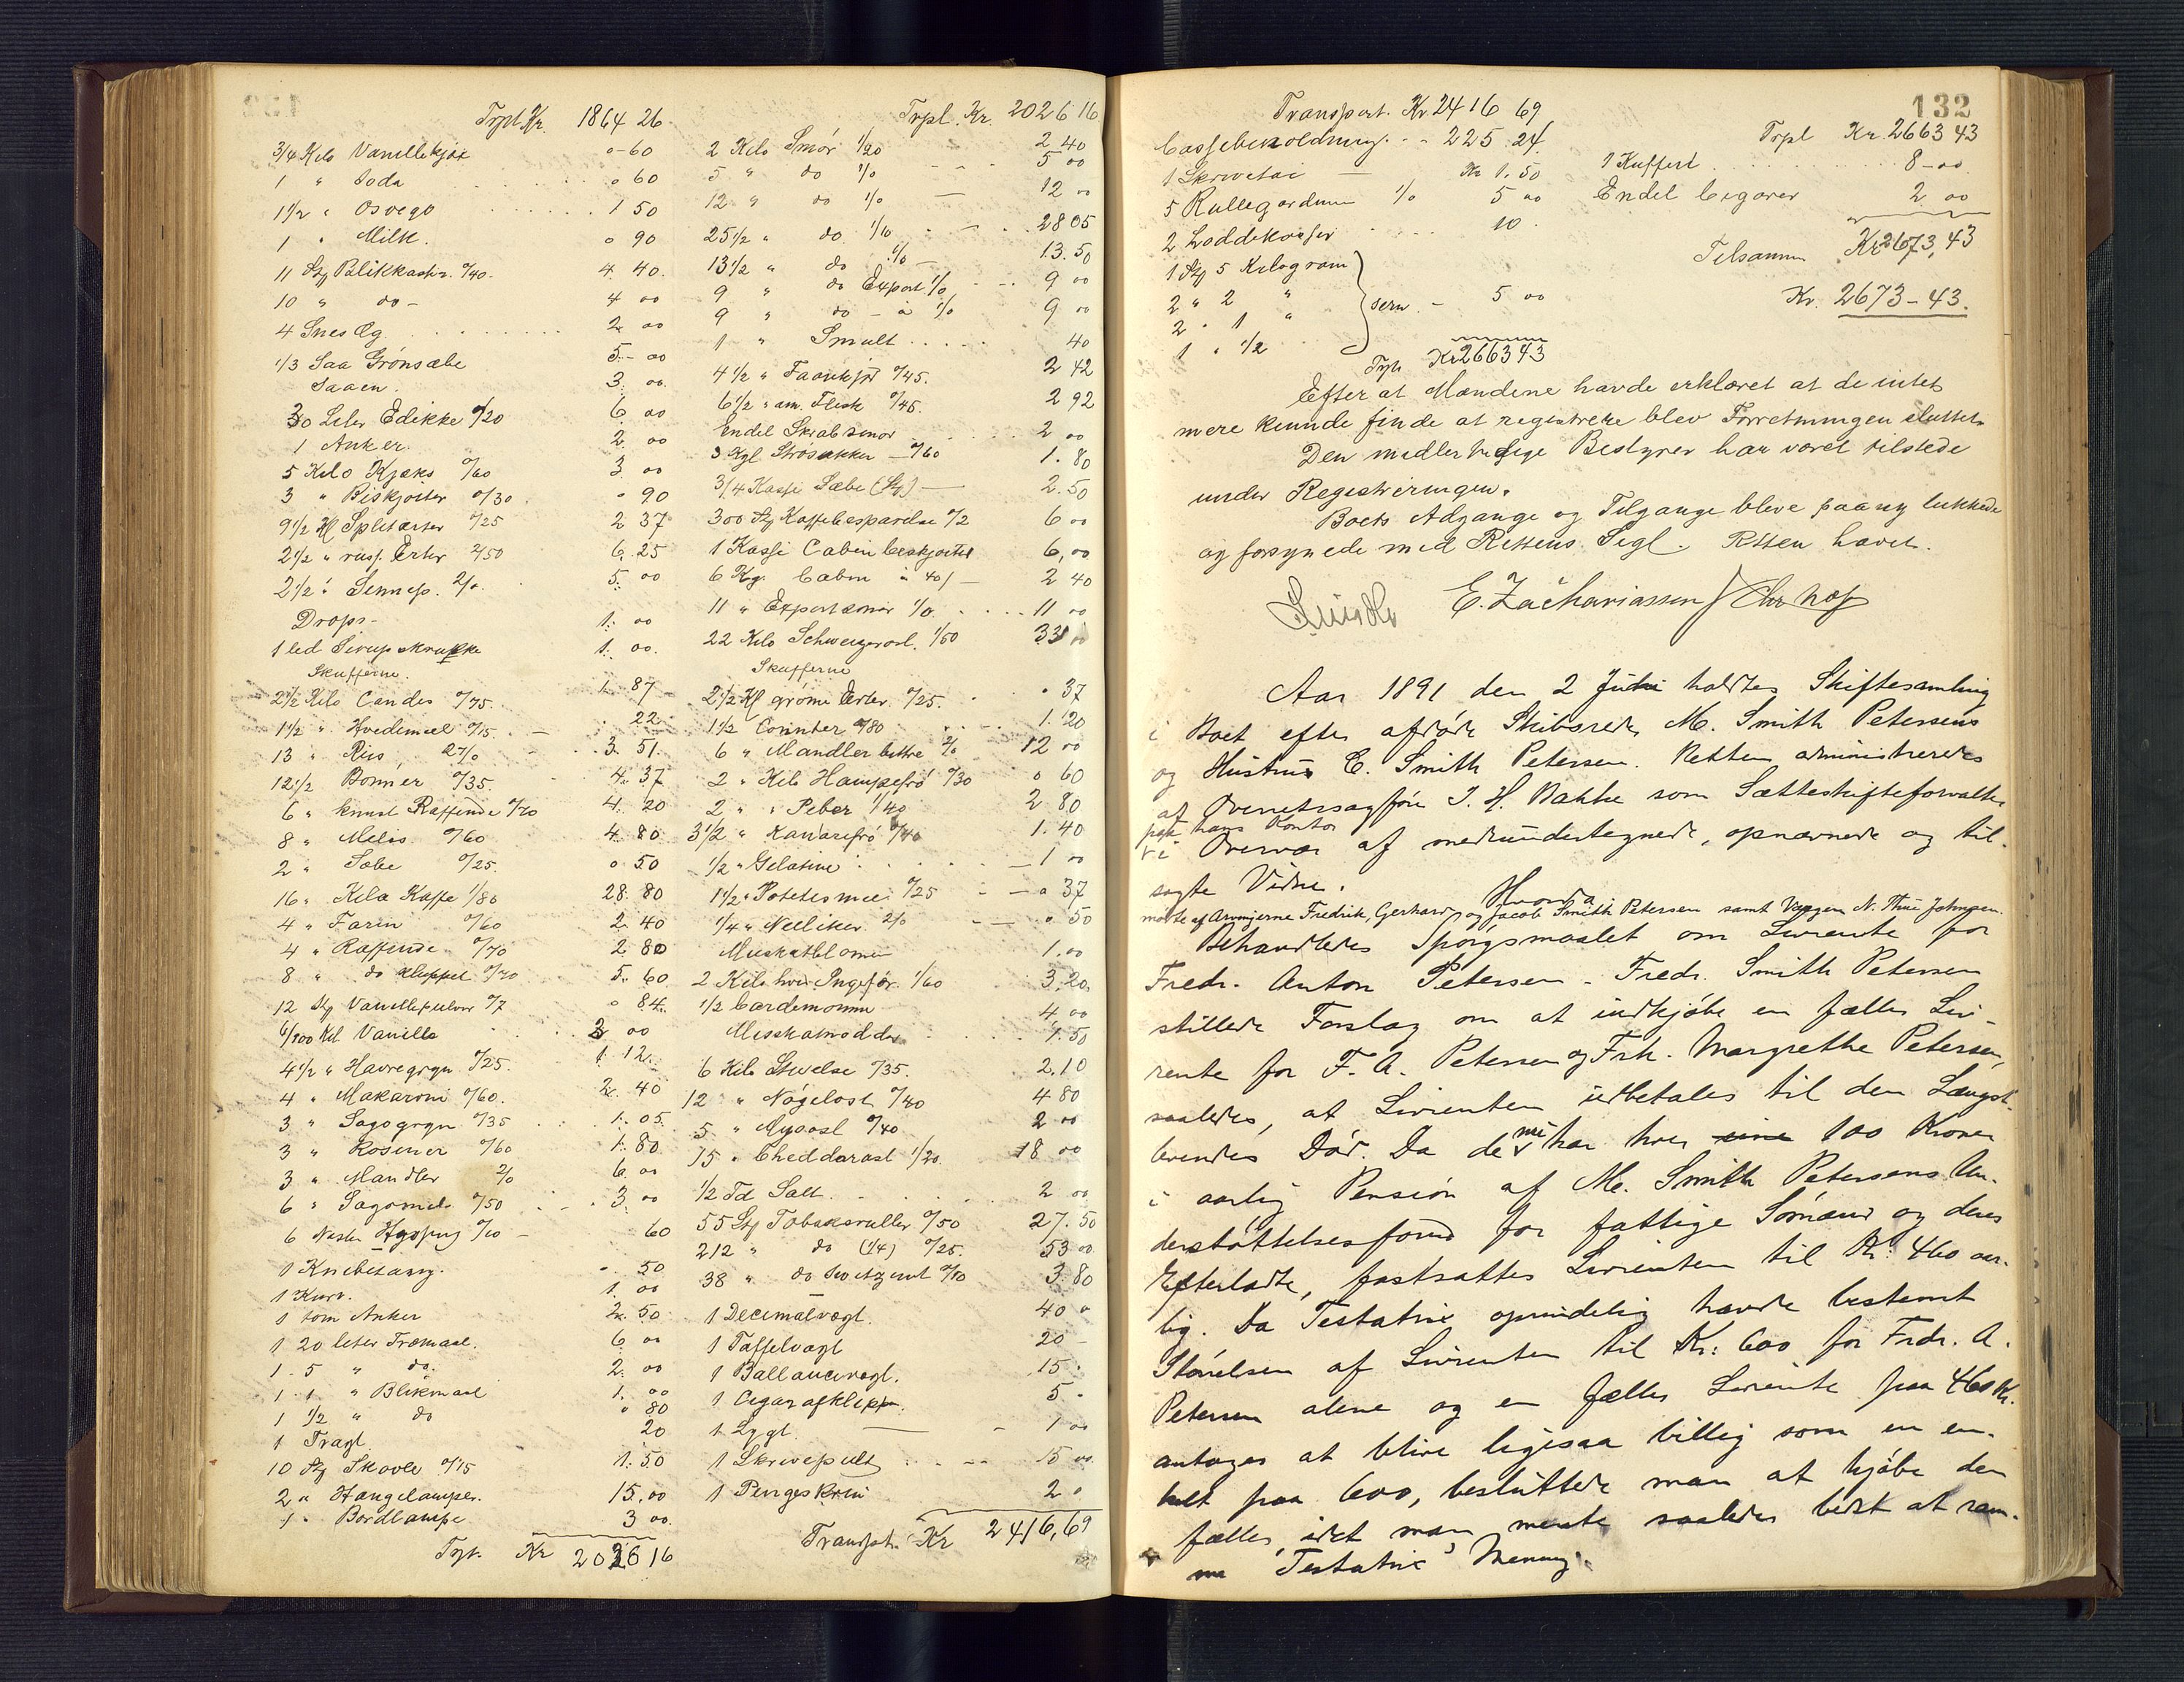 Trpt. Kr. 1864 26
3/4 Kilo Vanillekjæx 0-60
1 " Soda 0 60
1 1/2 " Osvego 1 50
1 " Milk. 0 90
11 Stg Blikkasser 0/40. 4. 40.
10 " do - 4 00
4 Snes Æg 2 00
1/3 Saa Grønsæbe 5 - 00
Saaen. 3. 00.
30 Liter Edikke 0/20 6. 00
1 Anker. 2. 00
5 Kilo Kjæks 0/60 3 00
3 " Biskjoiter 0/30 0 90
9 1/2 Kl Spliterter 0/25 2 37
2 1/2 " russ. Erter 2/50 6. 25
2 1/2 " Sennep. 2/0. 5. 00
Drops - 1. 00
1 led Sirupskrukke 1. 00.
Skufferne.
2 1/2 Kilo Candes 0/75. 1. 87
1 1/2 " Hvedemel 0/15. 22
13 " Riis, 27/0 3. 51.
12 1/2 Bønner 0/35. 4. 37
6 " knust Raffinade 0/70 4. 20
8 " Melis 0/60 4. 80
2 " Sæbe 0/25. 0 50
16 " Kilo Kaffe 1/80 28. 80
4 " Farin 0/60 2. 40
4 " Raffinade 0/70 2 80
8 " do kluppet 0/70 5. 60
12 Stg Vanillepulver 0/7 0 84.
6/100 Kil Vanille 3 00
4 1/2 " Havregryn 0/25. 1. 12.
4 " Makaroni 0/60. 2. 40
3 " Sagogryn 0/35 1. 05.
3 " Rosiner 0/60 1. 80
3 " Mandler 2/0 6. 00
6 " Sagomel 0/50 3. 00
6 0/10 60
1 Knibetang. 0. 50
1 Kurv. 1. 00
1 tom Anker 2. 50
1 20 liter Træmaal. 6. 00
1. 5 " do. 2. 00
1. 1 " Blikmaal 1. 00
1 1/2 " do 0 80
1 Tragt 20
10 Stg Skovle 0/15 1. 50
2 " Hængelamper. 15. 00
1 " Bordlampe 3 00.
Trpt. Kr 2026 16
Trpt. Kr. 2026 16
2 Kilo Smør 1/20 2 40
5 " do 1/0 5 00
12 " do 1/0 12 00
25 1/2 " do 1/10 28 05
13 1/2 " do 1/0 13. 50
9 " do Export 1/0 9 00
9 " do - a 1/0 9 00
1 " Smult 40
4 1/2 " Faarekjød 0/45. 2 42
6 1/2 " am. Flesk 0/45. 2 92
Endel Skrabsmør 2 00
3 Kgl Strøsukker - 0/60 1. 80
3/4 Kasse Sæbe (Stg) 2. 50
300 Stg Kaffebesparelse 0/2 6 00
1 Kasse Cabin beskjoiter 6, 00
6 Kg. Cabin a 40/ - 2 40
11 " Exportsmør 1/0. 11 00
22 Kilo Schweizerost. 1/50 33 00
Skufferne
2 1/2 Kl grønne Erter 0/25. 0 37
1 1/2 Corinter 0/80 1. 20
6 " Mandler bittre 2/0 12 00
2 " Kilo Hampefrø 0/30 0 60
2 " " Peber 1/40 2 80
3 1/2 " Kanariefrø 0/40 1. 40
1/2 " Gelatine 1 00
1 1/2 " Potetesmel 0/25 0 37
1/4 " Nelliker 2/0 0 50
Muskatblomme 1. 00
2 Kilo hvid Ingefær 1/60 3. 20.
1/2 Cardemomme 4. 00
Muskatnødder 1. 50
6 Kilo Stivelse 0/35. 2. 10
12 " Nøgelost 0/40 4 80
5 " Mysost 0/40 2 00
15 " Cheddarost 1/20. 18 00
1/2 Td Salt 2 00
55 Stg Tobaksruller 0/50 27. 50
212 " do (1/4) 0/25. 53 00
38 " do Switzent 0/10 3. 80
1 Decimalvægt. 40 0
1 Taffelvægt 20 -
1 Ballancevægt. 15 -
1 Cigarafklipper. 5 -
1 Lygt. 1 00
1 Skrivepult 15 00
1 Pengeskrin 2 0
Transpt. Kr 2416,69
132
Transport. Kr. 2416 69
Cassebeholdning 225. 24
1 Skrivetøi Kr 1. 50
5 Rullegardiner 1/0 5 00
2 Loddekasser 10.
1 Stg 5 Kilogram
2 " 2 "
2 " 1 "
1 " 1/2
jern - 5 00
Trpt. Kr 2663 43
Trpt Kr. 2663 43
1 Kuffert 8 - 00
Endel Cigarer 2 00
Tilsammen Kr 2673,43
Kr. 2673 - 43.
Efter at Mændene havde erklæret at de intet
mere kunde finde at registrere blev Forretningen sluttet.
Den midlertidige Bestyrer har været tilstede
under Registreringen.
Boets Adgange og Tilgange bleve paany lukkede
og forsynede med Rettens Segl. Retten hævet.
E. Zachariassen
Aar 1891 den 2 Juni holdtes Skiftesamling
i Boet efter afdøde Skibsreder M. Smith Petersens
og Hustru C. Smith Petersen. Retten administreredes
af Overretssagfører J. H. Bakke som Sætteskifteforvalter
paa hans Kontor
i Overvær af medundertegnede, opnævnede og til-
sagte Vidner.
Hvorda
mødte af Arvingerne Fredrik, Gerhard og Jacob Smith Petersen samt Værgen N. Thue Johnsen.
Behandledes Spørgsmaalet om Livrente for
Fredr. Anton Petersen. Fredr. Smith Petersen
stillede Forslag om at indkjøbe en fælles Liv-
rente for F. A. Petersen og Frk. Margrethe Petersen,
saaledes, at Livrenten udbetales til den Længst-
levendes Død. Da de nu har hver 100 Kroner
i aarlig Pension af M. Smith Petersens Un-
derstøttelsesfond for fattige Sømænd og deres
Efterladte, fastsattes Livrenten til Kr. 460 aar-
lig. Da Testatrix oprindelig havde bestemt
Størrelsen af Livrenten til Kr: 600 for Fredr. A.
Petersen alene og en fælles Livrente paa 460 Kr.
antages at blive ligesaa billig som en en-
kelt paa 600, besluttede man at kjøbe den
fælles, idet man mente saaledes bedst at ram-
me Testatrix' Mening.